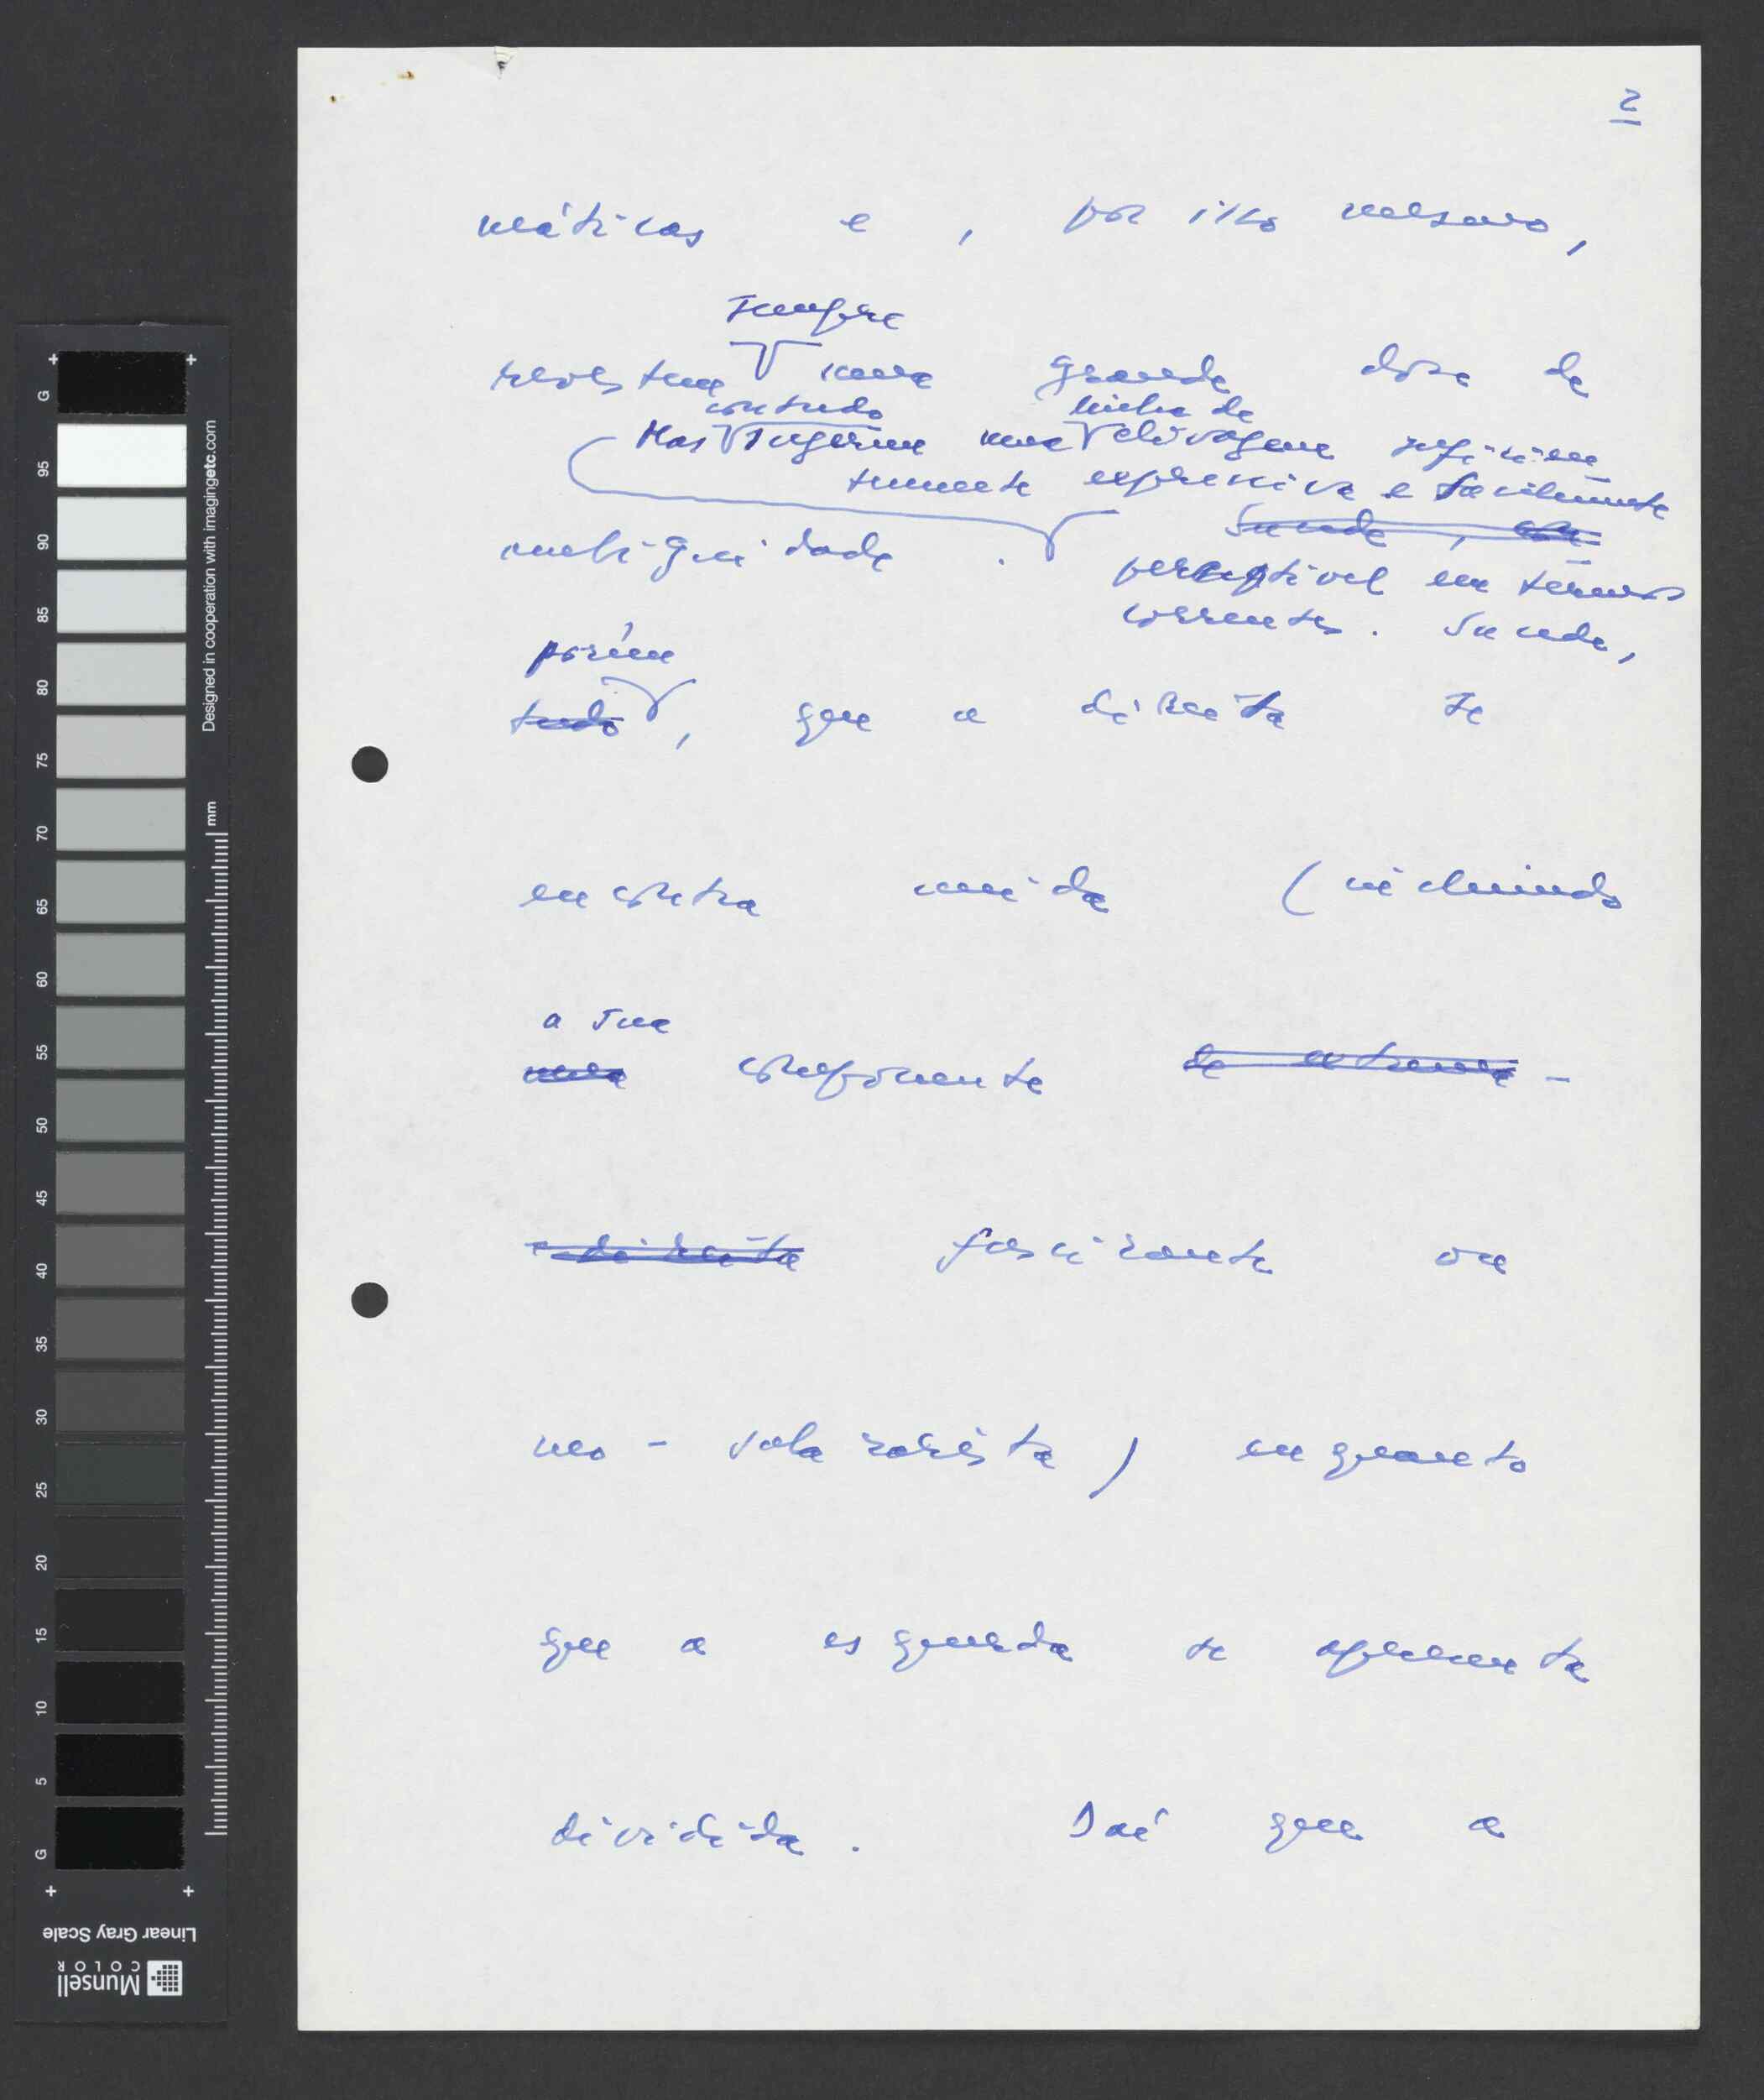 2
máticas e, por isso mesmo,
sempre
revestem uma grande dose de
contudo linha de
Mas sugerem uma clivagem suficien-
temente expressiva e facilmente
ambiguidade. Sucede, con-
perceptível em termos
correntes. Sucede,
porém
tudo, que a direita se
encontra unida (incluindo
a sua
uma componente de extrema-
-direita fascizante ou
neo-salazarista) enquanto
que a esquerda se apresenta
dividida. Daí que a
G 95 90 85 80 75 70 65 60 55 50 45 40 35 30 25 20 15 10 5 G
mm
Designed in cooperation with imagingetc.com
Linear Gray Scale
Munsell
COLOR